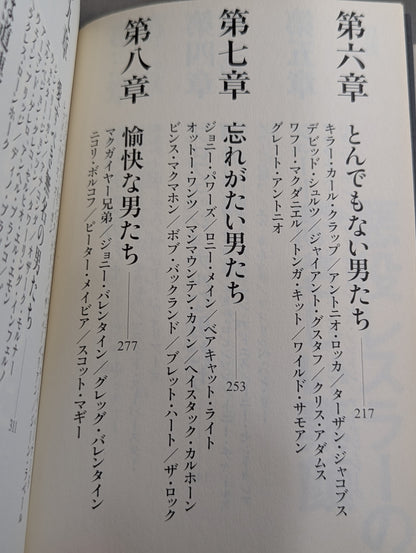 第六章 とんでもない男たち 217
キラー・カール・クラップ／アントニオ・ロッカ／ターザン・ジャコブス
デビッド・シュルツ／ジャイアント・グスタフ／クリス・アダムス
ワフー・マクダニエル／トンガ・キット／ワイルド・サモアン
グレート・アントニオ
第七章 忘れがたい男たち 253
ジョニー・パワーズ／ロニー・メイン／ベアキャット・ライト
オットー・ワンツ／マンマウンテン・カノン／ヘイスタック・カルホーン
ビンス・マクマホン／ボブ・バックランド／ブレット・ハート／ザ・ロック
第八章 愉快な男たち 277
マクガイヤー兄弟／ジョニー・バレンタイン／グレッグ・バレンタイン
ニコリ・ボルコフ／ピーター・メイビア／スコット・マギー
の男たち
311